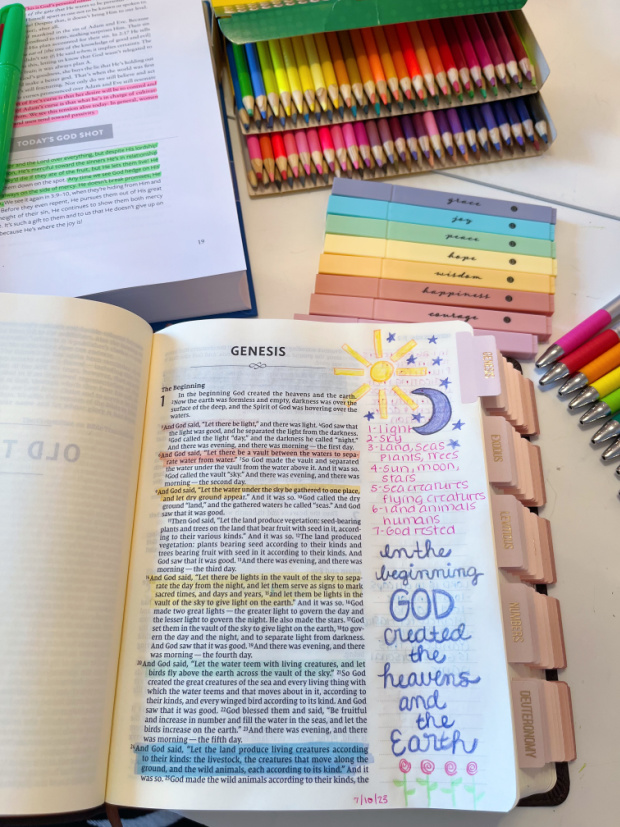 TODAY'S GOD SHOT
19
grace
joy
peace
hope
wisdom
happiness
courage
OLD T
GENESIS
The Beginning
1 In the beginning God created the heavens and the earth.
2Now the earth was formless and empty, darkness was over the
surface of the deep, and the Spirit of God was hovering over the
waters.
3And God said, "Let there be light," and there was light. 4God saw that
the light was good, and he separated the light from the darkness.
5God called the light "day," and the darkness he called "night."
And there was evening, and there was morning — the first day.
6And God said, "Let there be a vault between the waters to sepa-
rate water from water." 7So God made the vault and separated
the water under the vault from the water above it. And it was so.
8God called the vault "sky." And there was evening, and there was
morning — the second day.
9And God said, "Let the water under the sky be gathered to one place,
and let dry ground appear." And it was so. 10God called the dry
ground "land," and the gathered waters he called "seas." And God
saw that it was good.
11Then God said, "Let the land produce vegetation: seed-bearing
plants and trees on the land that bear fruit with seed in it, accord-
ing to their various kinds." And it was so. 12The land produced
vegetation: plants bearing seed according to their kinds and
trees bearing fruit with seed in it according to their kinds. And
God saw that it was good. 13And there was evening, and there was
morning — the third day.
14And God said, "Let there be lights in the vault of the sky to sepa-
rate the day from the night, and let them serve as signs to mark
sacred times, and days and years, 15and let them be lights in the
vault of the sky to give light on the earth." And it was so. 16God
made two great lights — the greater light to govern the day and
the lesser light to govern the night. He also made the stars. 17God
set them in the vault of the sky to give light on the earth, 18to gov-
ern the day and the night, and to separate light from darkness.
And God saw that it was good. 19And there was evening, and there
was morning — the fourth day.
20And God said, "Let the water teem with living creatures, and let
birds fly above the earth across the vault of the sky." 21So God
created the great creatures of the sea and every living thing with
which the water teems and that moves about in it, according to
their kinds, and every winged bird according to its kind. And God
saw that it was good. 22God blessed them and said, "Be fruitful
and increase in number and fill the water in the seas, and let the
birds increase on the earth." 23And there was evening, and there
was morning — the fifth day.
24And God said, "Let the land produce living creatures according
to their kinds: the livestock, the creatures that move along the
ground, and the wild animals, each according to its kind." And it
was so. 25God made the wild animals according to their kinds, the
1-light
2-sky
3-land, seas
plants, trees
4-sun, moon,
stars
5-sea creatures
flying creatures
6-land animals
humans
7-God rested
In the
beginning
GOD
created
the
heavens
and
the
Earth
7/10/23
GENESIS
EXODUS
LEVITICUS
NUMBERS
DEUTERONOMY